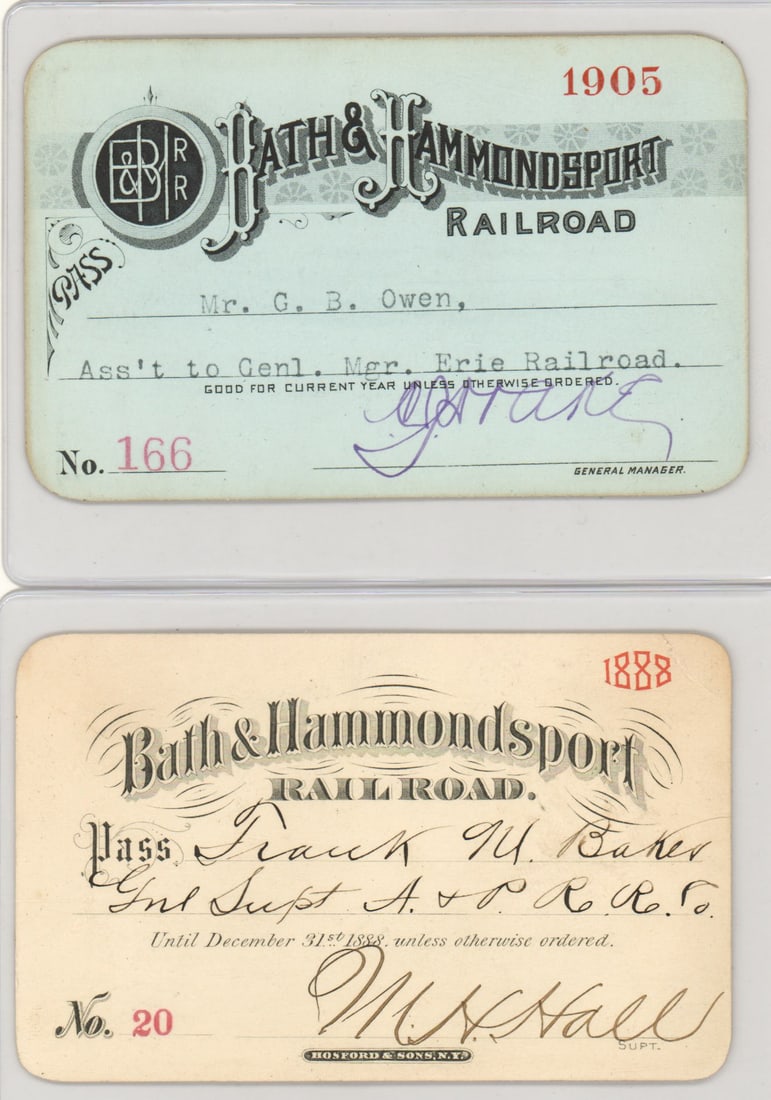 1905
B&H RR
BATH & HAMMONDSPORT
RAILROAD
PASS
Mr. G. B. Owen,
Ass't to Genl. Mgr. Erie Railroad.
GOOD FOR CURRENT YEAR UNLESS OTHERWISE ORDERED.
No. 166
GENERAL MANAGER.
1888
Bath & Hammondsport
RAIL ROAD.
Pass Frank M. Baker
Gnl Supt A. & P. R. R. Co.
Until December 31st 1888. unless otherwise ordered.
M. H. Hall
No. 20
SUPT.
HOSFORD & SONS, N.Y.